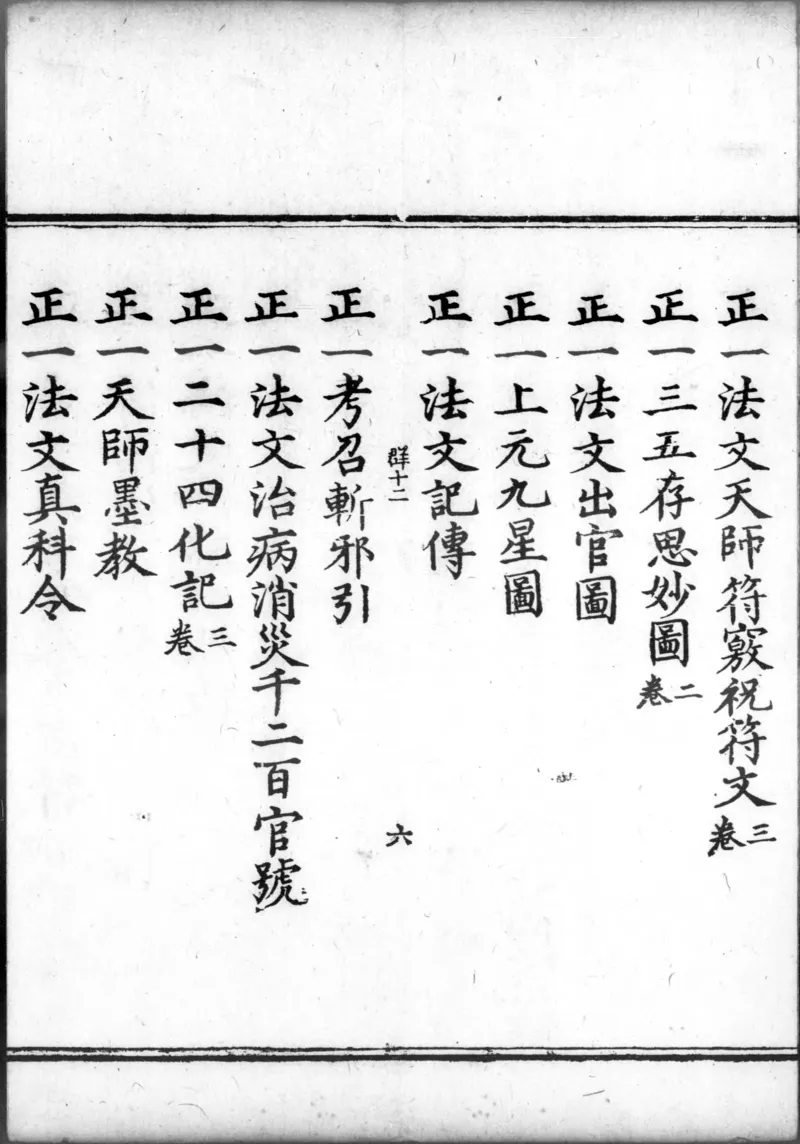 正一法文天師符竅祝符文三卷
正一三五存思妙圖二卷
正一法文出官圖
正一上元九星圖
正一法文記傳
群十二
六
正一考召斬邪引
正一法文治病消災千二百官號
正一二十四化記三卷
正一天師墨教
正一法文真科令